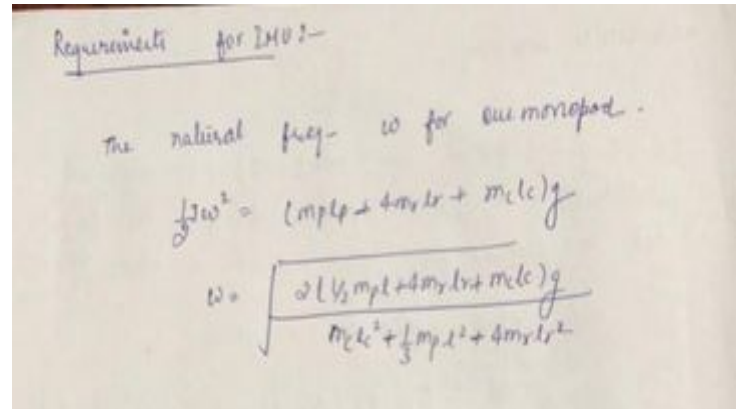 Requirements for IMU:-
The natural freq- ω for our monopod.
½Jω² = (mplp + 4mrlr + mclc)g
ω = √(2(½mpl+4mrlr+mclc)g / (mclc²+⅓mpl²+4mrlr²))